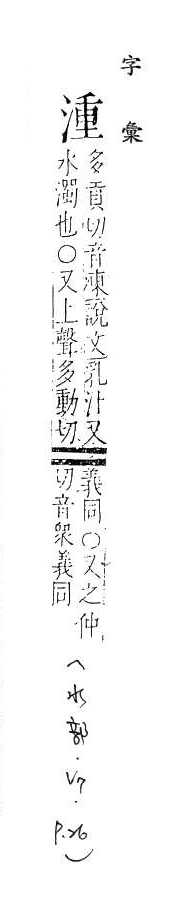 字彙
湩
多貢切音凍說文乳汁又
水濁也○又上聲多動切
義同○又之仲
切音衆義同
(水部.V7.P.26)